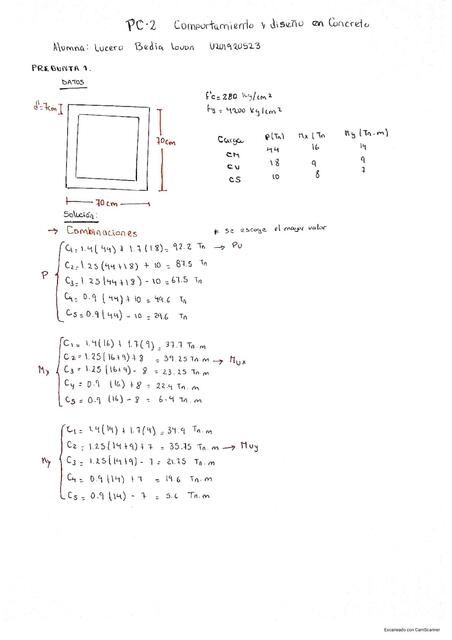 PC-2 Comportamiento y diseño en Concreto
Alumna: Lucero Bedia Lovon U201920523
PREGUNTA 1.
DATOS
d'=7cm
70cm
70cm
f'c = 280 Kg/cm²
fy = 4200 Kg/cm²
Carga P(Tn) Mx(Tn My(Tn.m)
CM 44 16 14
CV 18 9 9
CS 10 8 7
Solución:
→ Combinaciones * se escoge el mayor valor
P
C1 = 1.4(44) + 1.7(18) = 92.2 Tn → Pu
C2 = 1.25(44+18) + 10 = 87.5 Tn
C3 = 1.25(44+18) - 10 = 67.5 Tn
C4 = 0.9(44) + 10 = 49.6 Tn
C5 = 0.9(44) - 10 = 29.6 Tn
Mx
C1 = 1.4(16) + 1.7(9) = 37.7 Tn.m
C2 = 1.25(16+9) + 8 = 39.25 Tn.m → Mux
C3 = 1.25(16+9) - 8 = 23.25 Tn.m
C4 = 0.9 (16) + 8 = 22.4 Tn.m
C5 = 0.9 (16) - 8 = 6.4 Tn.m
My
C1 = 1.4(14) + 1.7(9) = 34.9 Tn.m
C2 = 1.25(14+9) + 7 = 35.75 Tn.m → Muy
C3 = 1.25(14+9) - 7 = 21.75 Tn.m
C4 = 0.9(14) + 7 = 19.6 Tn.m
C5 = 0.9(14) - 7 = 5.6 Tn.m
Escaneado con CamScanner